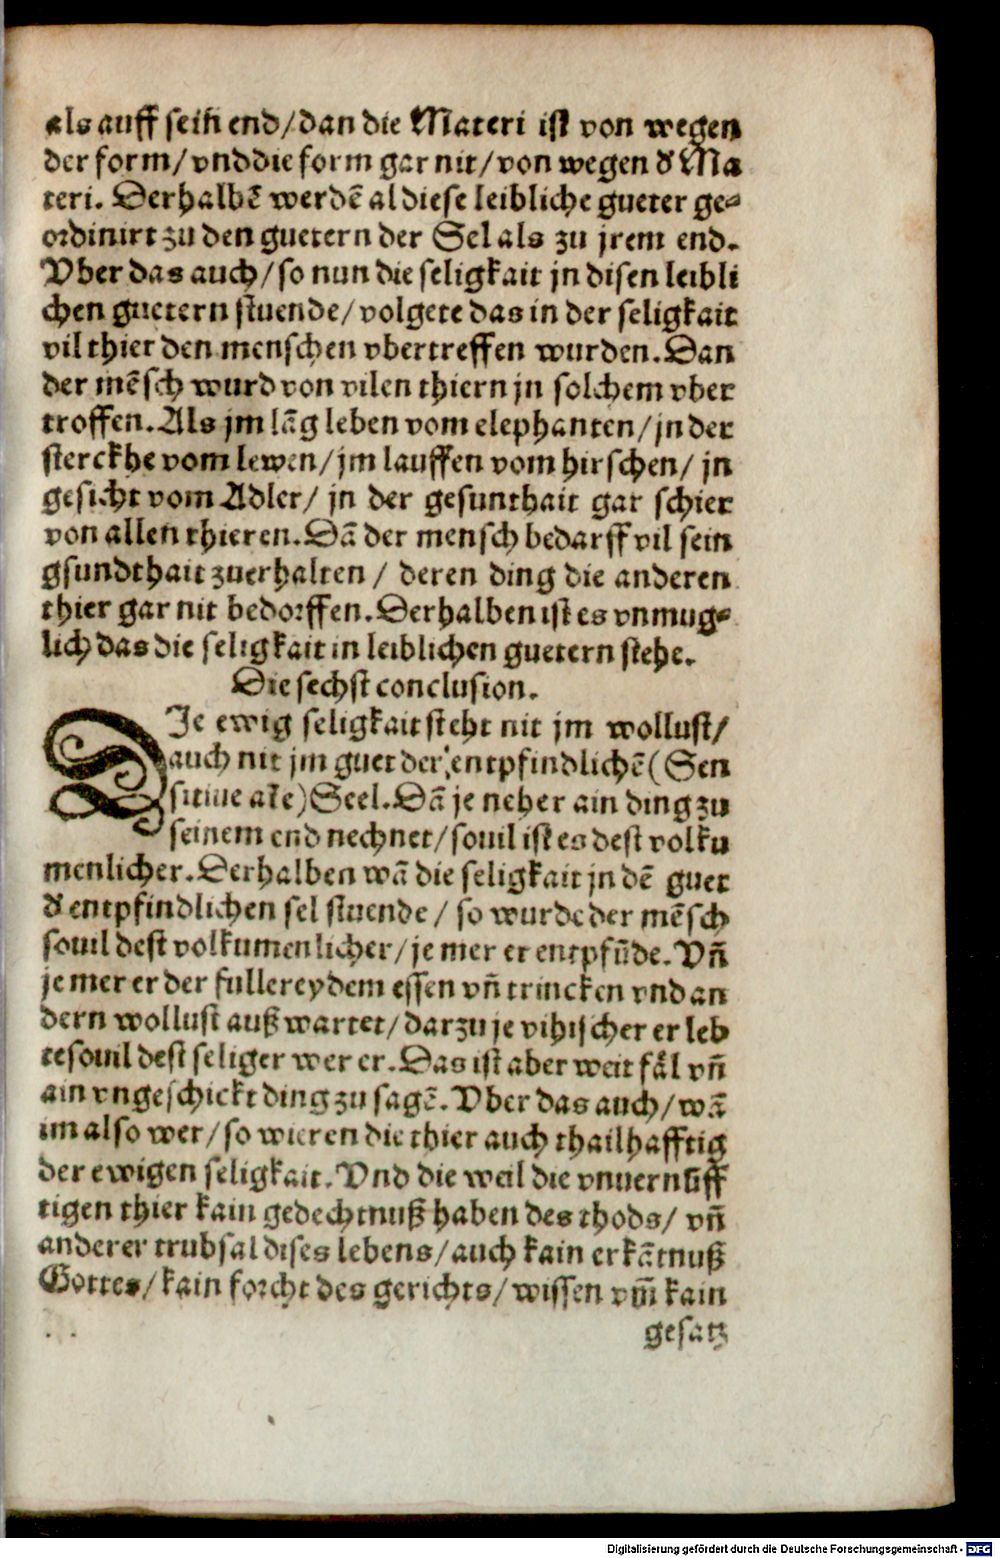 als auff sein end/dan die Materi ist von wegen
der form/vnd die form gar nit/von wegen d' Ma
teri. Derhalbē werdē al diese leibliche gueter ge⸗
ordinirt zu den guetern der Sel als zu jrem end.
Vber das auch/so nun die seligkait jn disen leibli
chen guetern stuende/volgete das in der seligkait
vil thier den menschen vbertreffen wurden. Dan
der mēsch wurd von vilen thiern jn solchem vber
troffen. Als jm lāg leben vom elephanten/jn der
sterckhe vom lewen/jm lauffen vom hirschen/ jn
gesicht vom Adler/ jn der gesunthait gar schier
von allen thieren. Dā der mensch bedarff vil sein
gsundthait zuerhalten / deren ding die anderen
thier gar nit bedorffen. Derhalben ist es vnmug⸗
lich das die seligkait in leiblichen guetern stehe.
Die sechst conclusion.
DJe ewig seligkait steht nit jm wollust/
auch nit jm guet der entpfindlichē (Sen
sitiue aīe) Seel. Dā je neher ain ding zu
seinem end nechnet/souil ist es dest volku
menlicher. Derhalben wā die seligkait jn dē guet
d' entpfindlichen sel stuende/ so wurde der mēsch
souil dest volkumenlicher/je mer er entpfūde. Vñ
je mer er der fullerey dem essen vñ trincken vnd an
dern wollust auß wartet/darzu je vihischer er leb
te souil dest seliger wer er. Das ist aber weit fäl vñ
ain vngeschickt ding zu sagē. Vber das auch/wā
im also wer/so wieren die thier auch thailhafftig
der ewigen seligkait. Vnd die weil die vnuernüff
tigen thier kain gedechtnuß haben des thods/ vñ
anderer trubsal dises lebens/auch kain erkātnuß
Gottes/kain forcht des gerichts/wissen vm̄ kain
gesatz
Digitalisierung gefördert durch die Deutsche Forschungsgemeinschaft - DFG